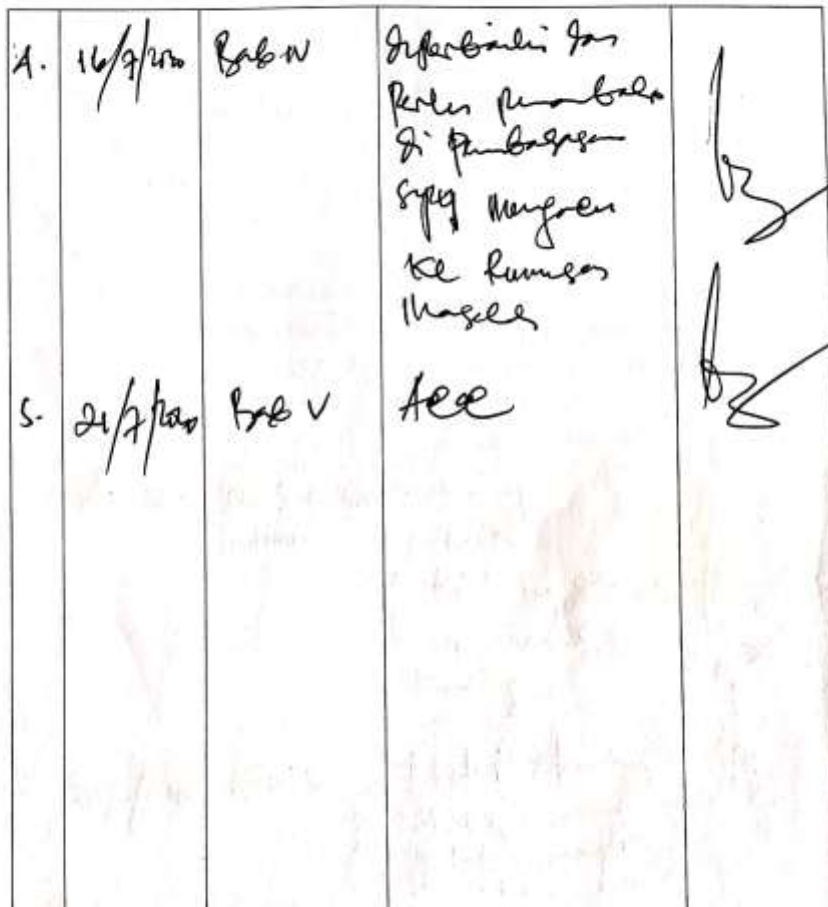 4. 16/7/2020 Bab IV diperbaiki dan
Perlu penambahan
di pembahasan
mengacu
Ke Rumusan
Masalah
5. 21/7/2020 Bab V Acc